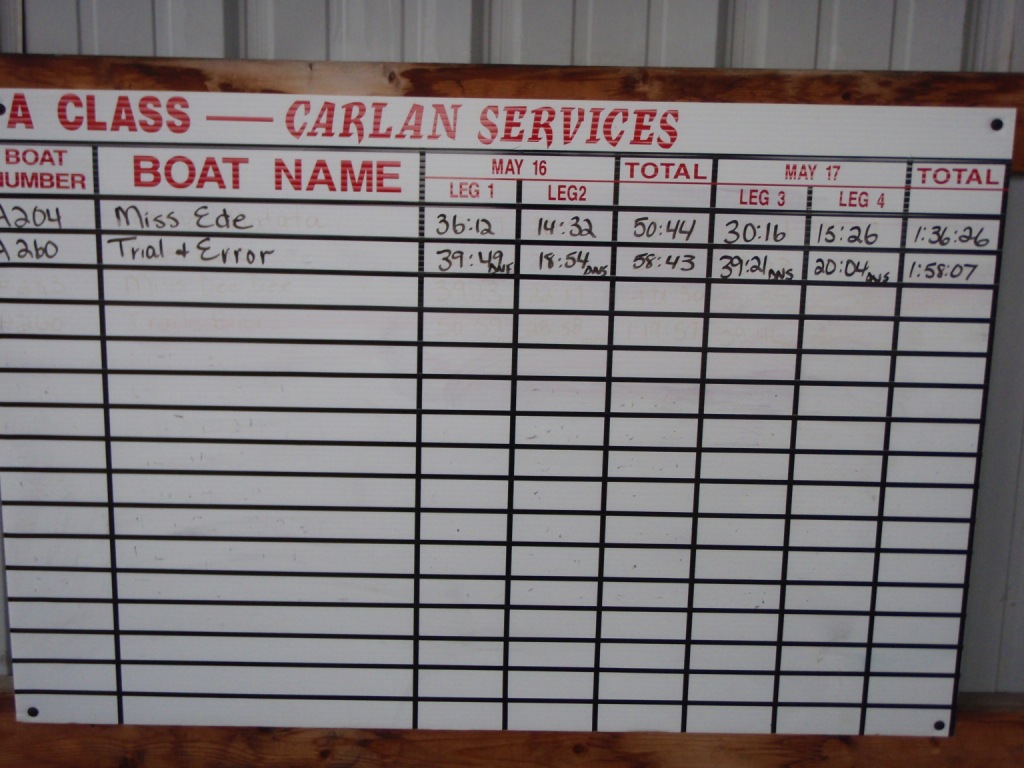 A CLASS — CARLAN SERVICES
BOAT NUMBER BOAT NAME MAY 16 TOTAL MAY 17 TOTAL
LEG 1 LEG2 LEG 3 LEG 4
A204 Miss Ede 36:12 14:32 50:44 30:16 15:26 1:36:26
A260 Trial & Error 39:49 DNF 18:54 DNS 58:43 39:21 DNS 20:04 DNS 1:58:07